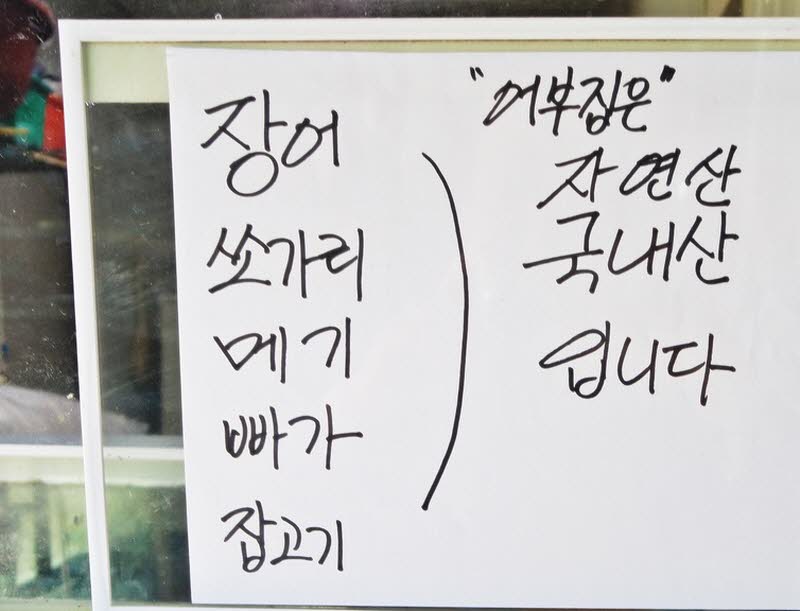 장어
쏘가리
메기
빠가
잡고기
"어부집은"
자연산
국내산
입니다